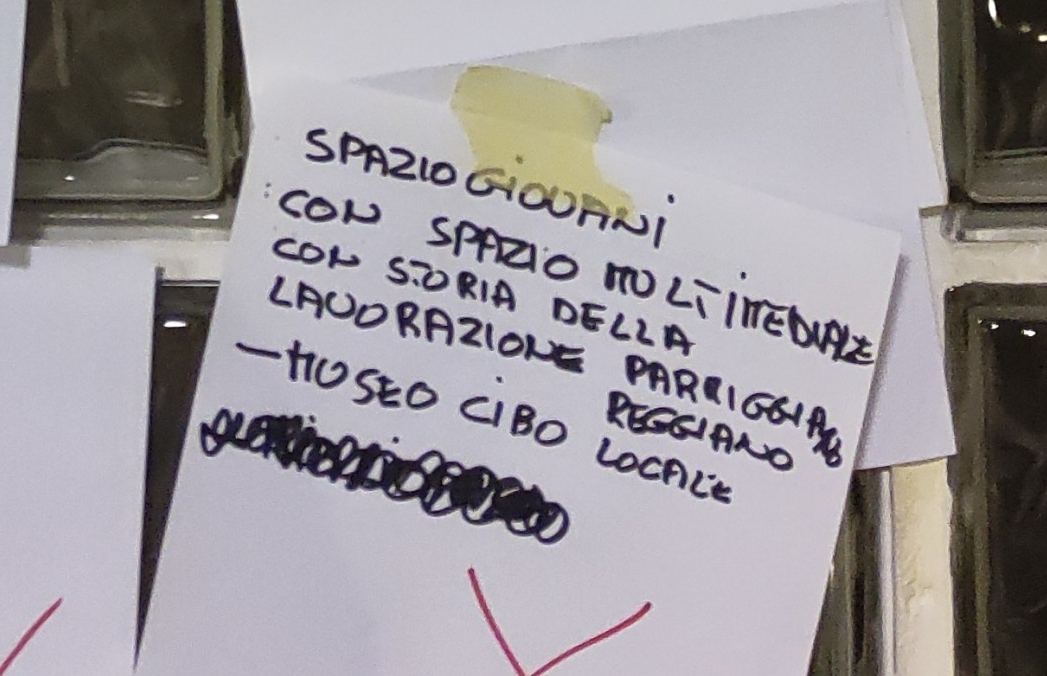 SPAZIO GIOVANI
CON SPAZIO MULTIMEDIALE
CON STORIA DELLA
LAVORAZIONE PARMIGGIANO
REGGIANO
- MUSEO CIBO LOCALE